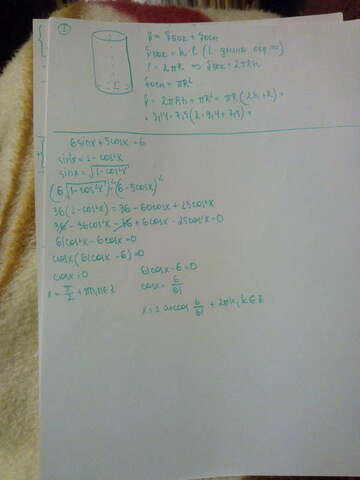 1
S = Sбок + Sосн
Sбок = h · l (l - длина окр-ти)
l = 2πR ⇒ Sбок = 2πRh
Sосн = πR²
S = 2πRh + πR² = πR(2h + R) =
= 3,14 · 7,5 (2 · 9,4 + 7,5) =
6sinx + 5cosx = 6
sin²x = 1 - cos²x
sinx = √1 - cos²x
(6√1 - cos²x)² = (6 - 5cosx)²
36(1 - cos²x) = 36 - 60cosx + 25cos²x
36 - 36cos²x - 36 + 6cosx - 25cos²x = 0
61cos²x - 6cosx = 0
cosx(61cosx - 6) = 0
cosx = 0
x = π/2 + πn, n ∈ Z
61cosx - 6 = 0
cosx = 6/61
x = ± arccos 6/61 + 2πk, k ∈ Z